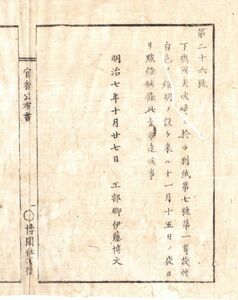 第二十六號
下總國犬吠埼ニ於テ別紙第七號第一等旋轉
白色ノ燈明ヲ設ケ来ル十一月十五日ノ夜ヨ
リ點燈候條此旨布達候事
明治七年十月廿七日　工部卿伊藤博文
官省公布書
博聞社